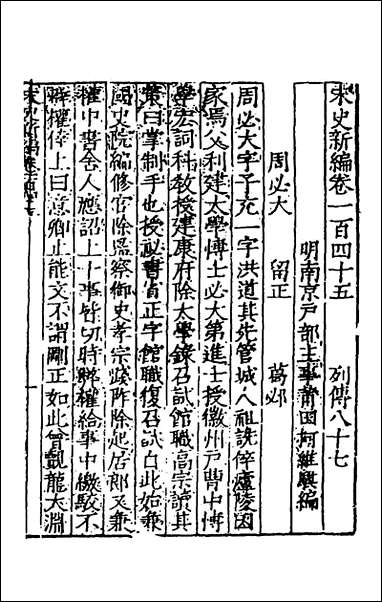 宋史新編卷一百四十五 列傳八十七
明南京戶部主事莆田柯維騏編
周必大 留正 葛邲
周必大字子充一字洪道其先管城人祖詵倅廬陵因
家焉父利建太學博士必大第進士授徽州戶曹中博
學宏詞科教授建康府除太學錄召試館職高宗讀其
策曰掌制手也授祕書省正字館職復召試自此始兼
國史院編修官除監察御史孝宗踐阼除起居郎又兼
權中書舍人應詔上十事皆切時弊權給事中繳駁不
辟權倖上曰意卿止能文不謂剛正如此曾覿龍大淵